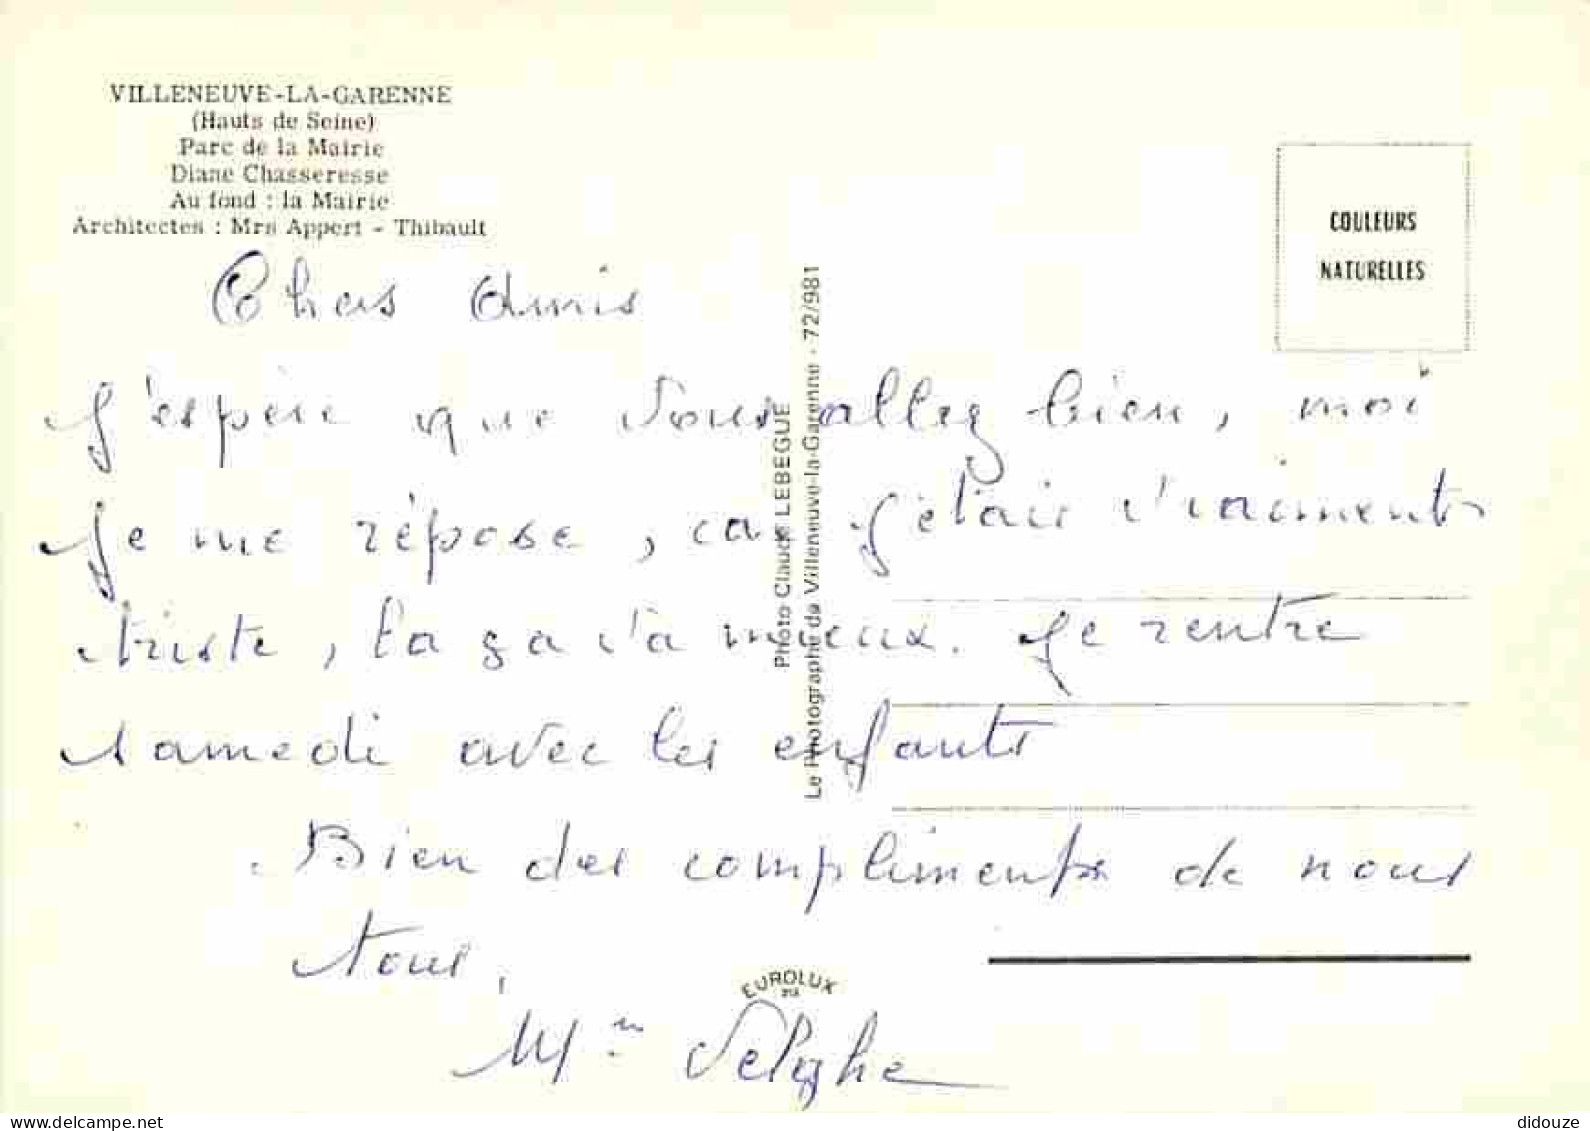 VILLENEUVE-LA-GARENNE
(Hauts de Seine)
Parc de la Mairie
Diane Chasseresse
Au fond : la Mairie
Architectes : Mrs Appert - Thibault
COULEURS
NATURELLES
Chers Amis
J'espère que vous allez bien, moi
je me répose, car j'étais vraiment
triste, la ça va mieux. Je rentre
samedi avec les enfants
Bien des compliments de nous
tous,
Mme
Photo Claude LEBEGUE
Le Photographe de Villeneuve-la-Garenne - 72/981
EUROLUX
delcampe.net
didouze